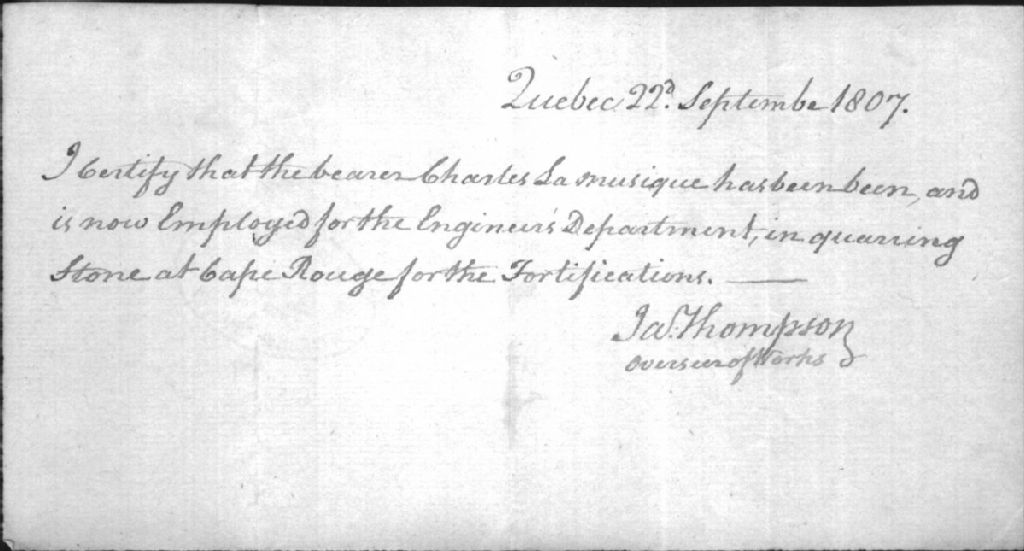 Quebec 22d. Septembe 1807.
I Certify that the bearer Charles La musique has been been, and
is now Employed for the Engineer's Department, in quarring
Stone at Cape Rouge for the Fortifications. —
Jas. Thompson
Overseer of Works